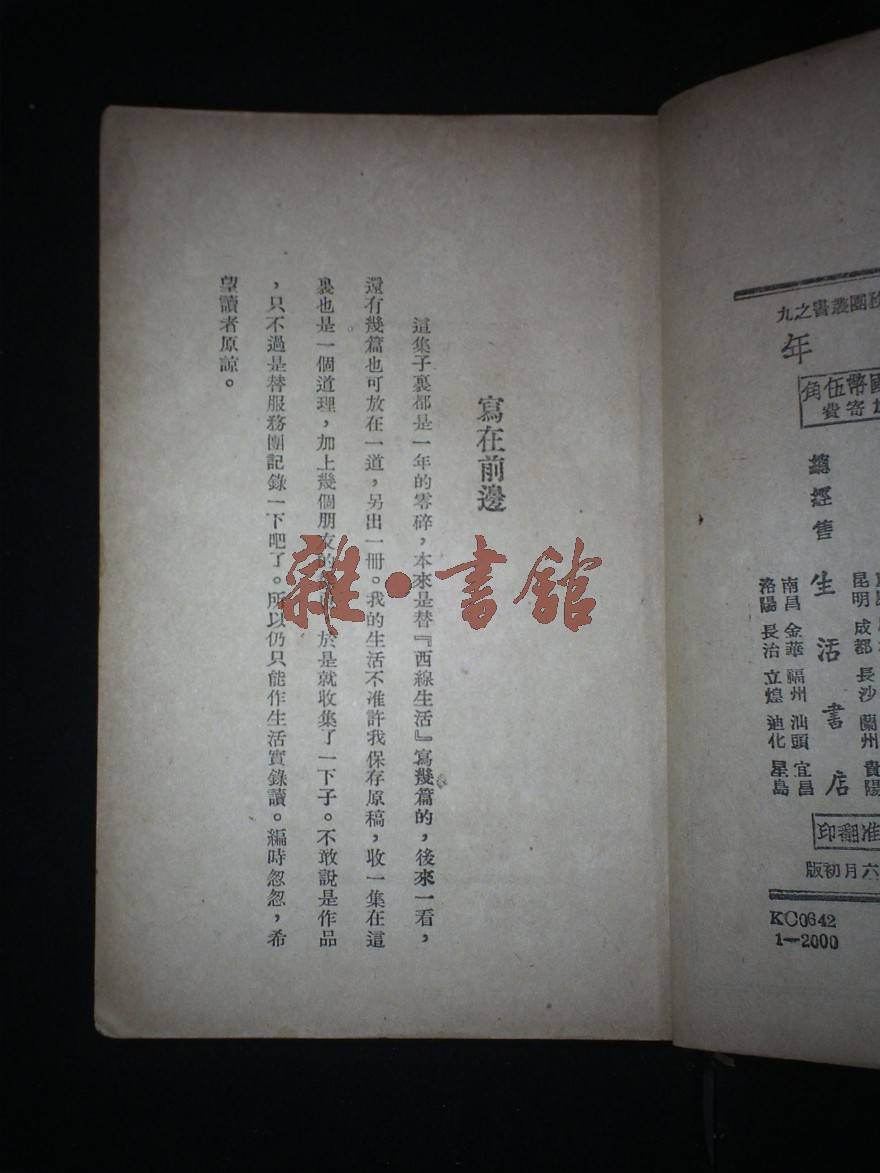 團叢書之九
年
國幣伍角
加寄費
總經售
生活書店
昆明 成都 長沙 蘭州 貴陽
南昌 金華 福州 汕頭 宜昌
洛陽 長治 立煌 迪化 星島
准翻印
六月初版
KC0642
1—2000
寫在前邊
這集子裏都是一年的零碎，本來是替『西線生活』寫幾篇的，後來一看，
還有幾篇也可放在一道，另出一冊。我的生活不准許我保存原稿，收一集在這
裏也是一個道理，加上幾個朋友的於是就收集了一下子。不敢說是作品
，只不過是替服務團記錄一下吧了。所以仍只能作生活實錄讀。編時忽忽，希
望讀者原諒。
雜·書館